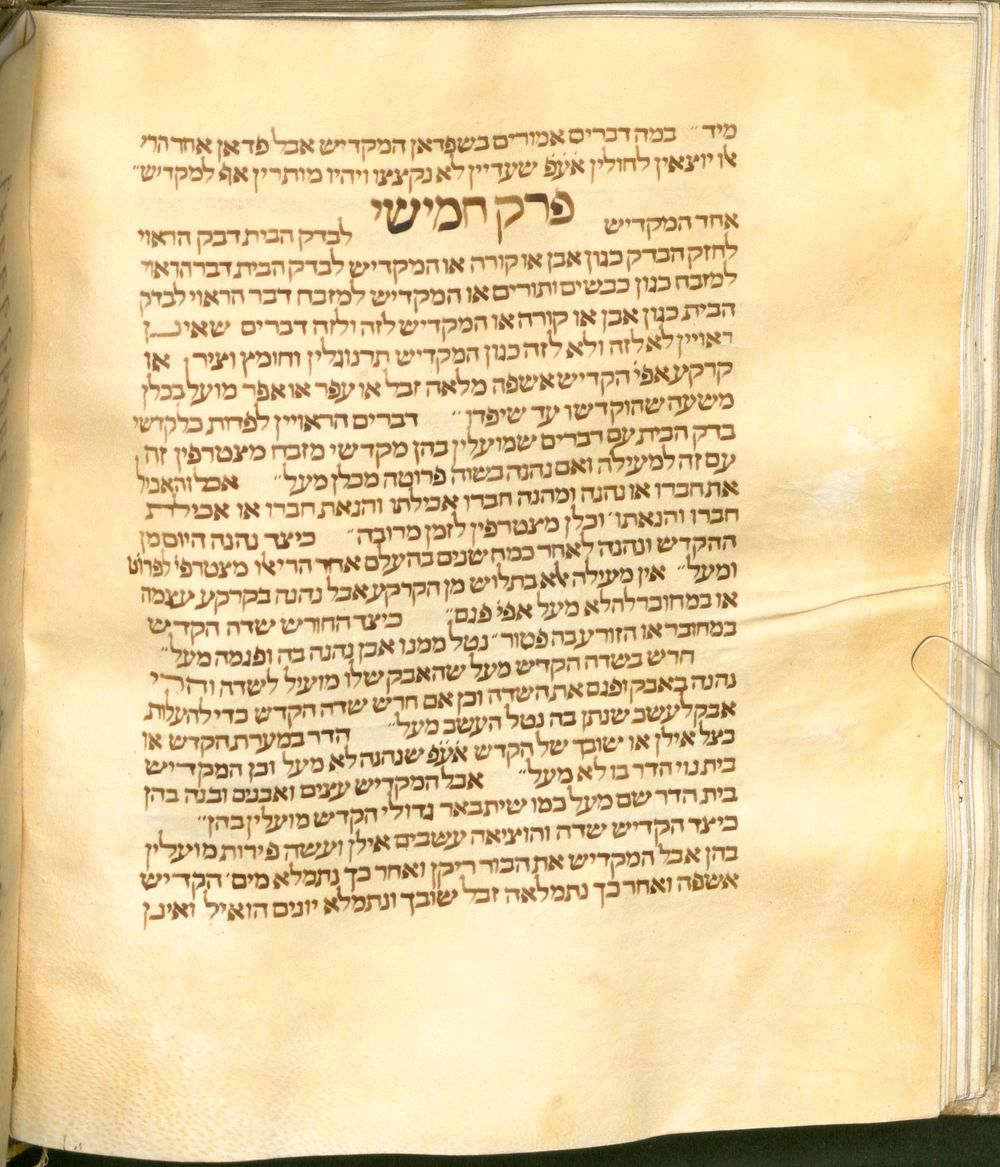 מיד״ במה דברים אמורים בשפדאן המקדיש אבל פדאן אחד הרי
אלו יוצאין לחולין אע״פ שעדיין לא נקצצו ויהיו מותרין אף למקדיש״
פרק חמישי
אחד המקדיש לבדק הבית דבק הראוי
לחזק הבדק כגון אבן או קורה או המקדיש לבדק הבית דבר הראוי
למזבח כגון כבשים ותורים או המקדיש למזבח דבר הראוי לבדק
הבית כגון אבן או קורה או המקדיש לזה ולזה דברים שאינן
ראויין לא לזה ולא לזה כגון המקדיש תרנגולין וחומץ וציר או
קרקע אפי׳ הקדיש אשפה מלאה זבל או עפר או אפר מועל בכלן
משעה שהוקדשו עד שיפדן״ דברים הראויין לפדות כל קדשי
בדק הבית עם דברים שמועלין בהן מקדשי מזבח מצטרפין זה
עם זה למעילה ואם נהנה בשוה פרוטה מכלן מעל״ אכל והאכיל
את חברו או נהנה ומהנה חברו אכילתו והנאת חברו או אכילת
חברו והנאתו׳ וכלן מצטרפין לזמן מרובה״ כיצד נהנה היום מן
ההקדש ונהנה לאחר כמה שנים בהעלם אחד הרי אלו מצטרפי׳ לפרוט׳
ומעל״ אין מעילה אלא בתלוש מן הקרקע אבל נהנה בקרקע עצמה
או במחובר לה לא מעל אפי׳ פגם״ כיצד החורש שדה הקדיש
במחובר או הזורע בה פטור״ נטל ממנו אבן נהנה בה ופגמה מעל״
חרש בשדה הקדיש מעל שהאבק שלו מועיל לשדה והרי
נהנה באבק ופגם את השדה וכן אם חרש שדה הקדש כדי להעלות
אבק לעשב שנתן בה נטל העשב מעל״ הדר במערת הקדש או
בצל אילן או שובך של הקדש אע״פ שנהנה לא מעל וכן המקדיש
בית גוי הדר בו לא מעל״ אבל המקדיש עצים ואבנים ובנה בהן
בית הדר שם מעל כמו שיתבאר גדולי הקדש מועלין בהן״
כיצד הקדיש שדה והוציאה עשבים אילן ועשה פירות מועלין
בהן אבל המקדיש את הבור ריקן ואחר כך נתמלא מים׳ הקדיש
אשפה ואחר כך נתמלאה זבל שובך ונתמלא יונים הואיל ואינן